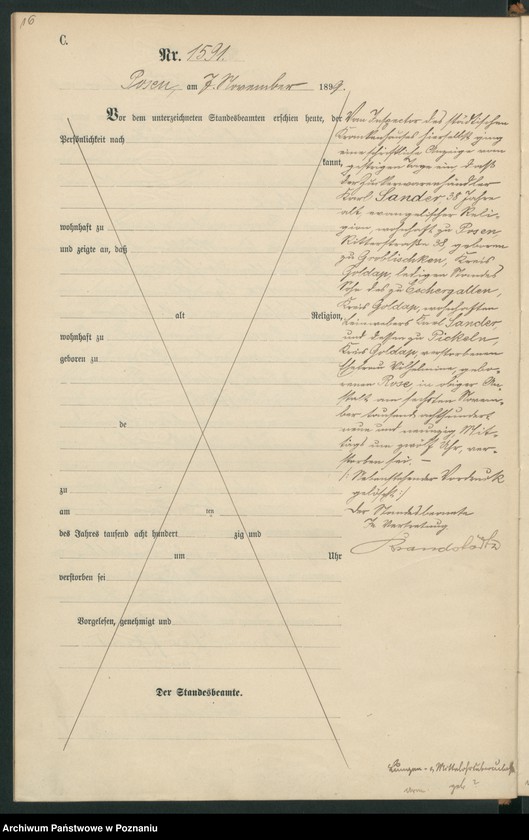 16
C.
Nr. 1591.
Posen, am 7. November 1899.
Vor dem unterzeichneten Standesbeamten erschien heute, der
Persönlichkeit nach
kannt,
wohnhaft zu
und zeigte an, daß
alt Religion,
wohnhaft zu
geboren zu
de
zu
am ten
des Jahres tausend acht hundert zig und
um Uhr
verstorben sei
Vorgelesen, genehmigt und
Der Standesbeamte.
Vom Inspector des städtischen
Krankenhauses hierselbst ging
eine schriftliche Anzeige vom
gestrigen Tage ein, daß
der Zuckerwaarenhändler
Karl Sander 38 Jahre
alt, evangelischer Reli-
gion, wohnhaft zu Posen
Ritterstraße 38, geboren
zu Groblischken, Kreis
Goldap, ledigen Standes
Sohn des zu Eschergallen,
Kreis Goldap, wohnhaften
Leinewebers Karl Sander,
und dessen zu Pickeln,
Kreis Goldap, verstorbenen
Ehefrau Wilhelmine, gebo-
renen Rose in obiger An-
stalt am sechsten Novem-
ber tausend achthundert
neun und neunzig Mit-
tags um zwölf Uhr, ver-
storben sei. —
/: Nebenstehender Vordruck
gelöscht :/
Der Standesbeamte
In Vertretung
Lungen- u.
Archiwum Państwowe w Poznaniu